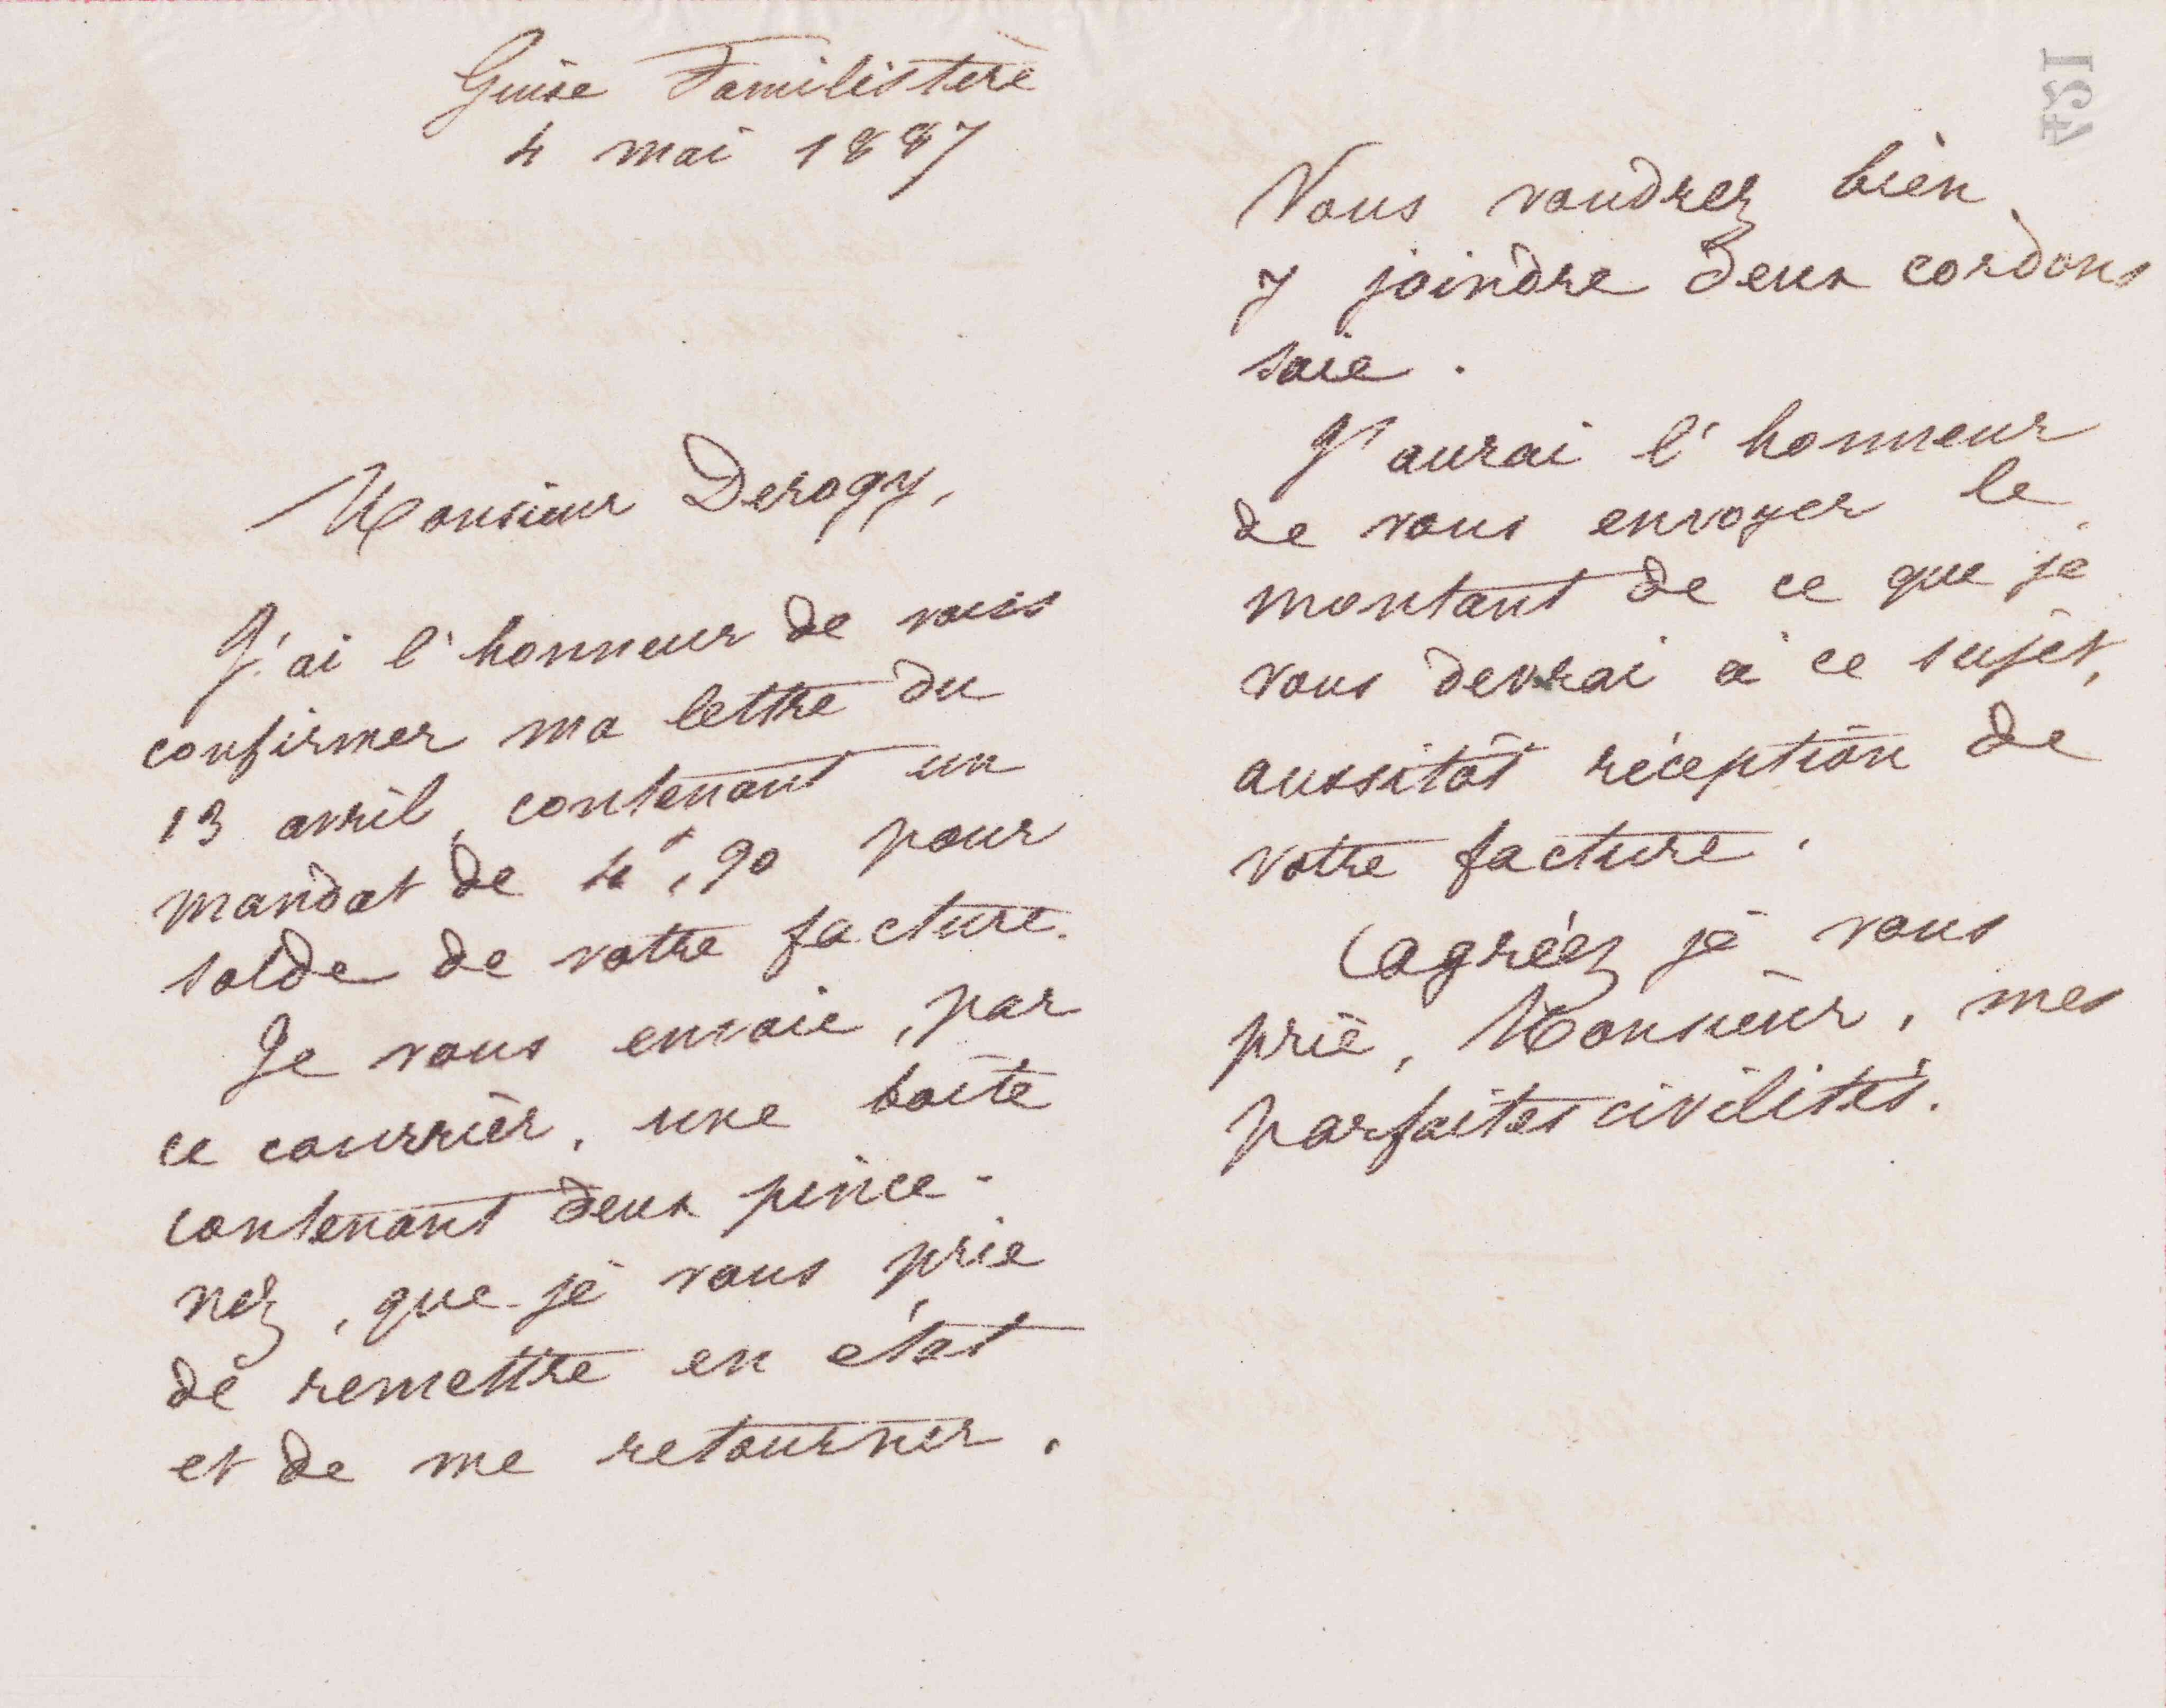 Guise Familistère
4 mai 1887
Monsieur Derogy,
J'ai l'honneur de vous
confirmer ma lettre du
13 avril, contenant un
mandat de 4f,90 pour
solde de votre facture.
Je vous envoie, par
ce courrier, une boîte
contenant deux pince-
nez, que je vous prie
de remettre en état
et de me retourner.
Vous voudrez bien
y joindre deux cordons
soie.
J'aurai l'honneur
de vous envoyer le
montant de ce que je
vous devrai à ce sujet,
aussitôt réception de
votre facture.
Agréez je vous
prie, Monsieur, mes
parfaites civilités.